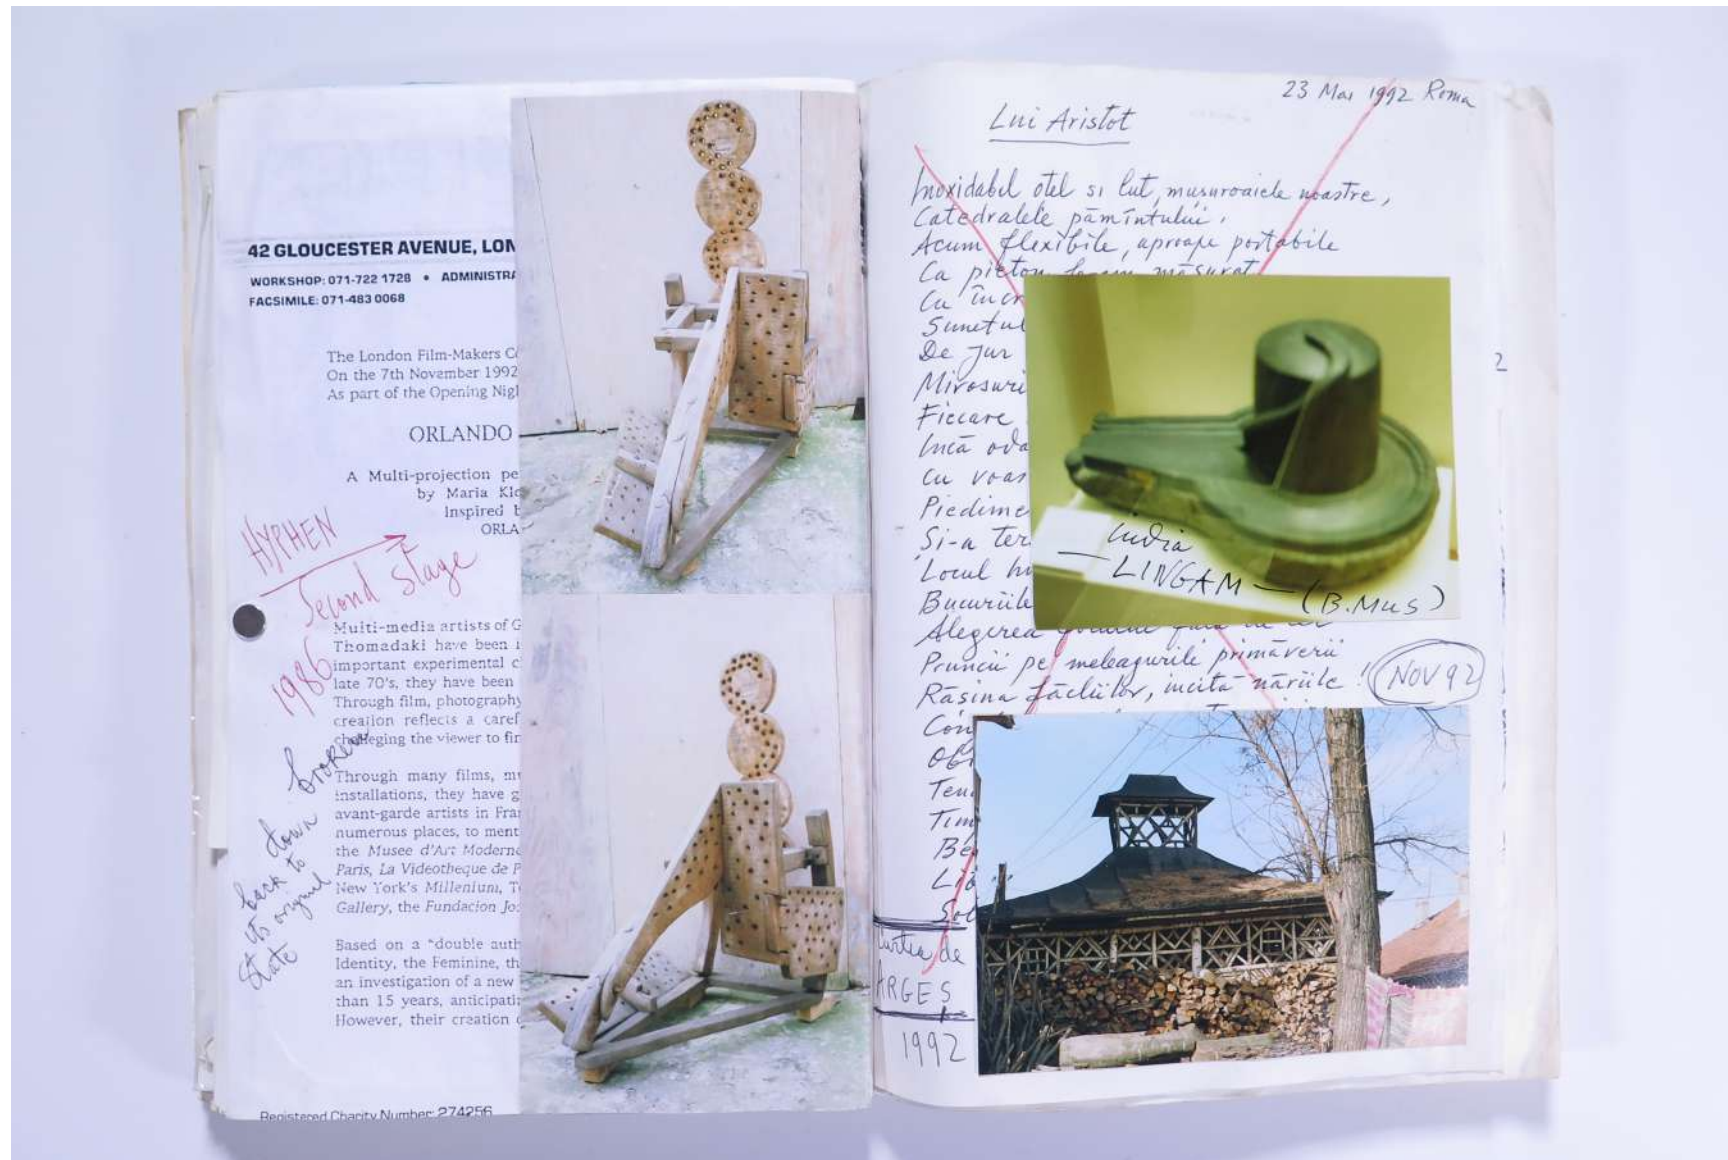 42 GLOUCESTER AVENUE, LON
WORKSHOP: 071-722 1728 • ADMINISTRA
FACSIMILE: 071-483 0068
The London Film-Makers Co
On the 7th November 1992
As part of the Opening Nig
ORLANDO
A Multi-projection pe
by Maria Klo
Inspired b
ORLA
HYPHEN
Second Stage
1986
Multi-media artists of G
Thomadaki have been i
important experimental c
late 70's, they have been
Through film, photography
creation reflects a caref
challeging the viewer to fin
broken
down
back to
its original
state
Through many films, mu
installations, they have g
avant-garde artists in Fra
numerous places, to ment
the Musee d'Art Moderne
Paris, La Videotheque de P
New York's Millenium, T
Gallery, the Fundacion Jo
Based on a "double auth
Identity, the Feminine, th
an investigation of a new
than 15 years, anticipati
However, their creation
Registered Charity Number: 274256
23 Mai 1992 Roma
Lui Aristot
Inoxidabil oţel si lut, muşuroaiele noastre,
Catedralele pămîntului.
Acum flexibile, aproape portabile
Ca pieton măsurat
Cu încr
Sunetul
De jur
Mirosuri
Fiecare
Incă oda
Cu voas
Piedime
Si-a ter
Locul
Bucuriile
Alegerea
Pruncii pe meleagurile primăverii
Răsina făcliilor, incită nările!
NOV 92
India
LINGAM — (B.MUS)
Con
Obi
Tim
Lib
Curtea de
ARGEŞ
1992